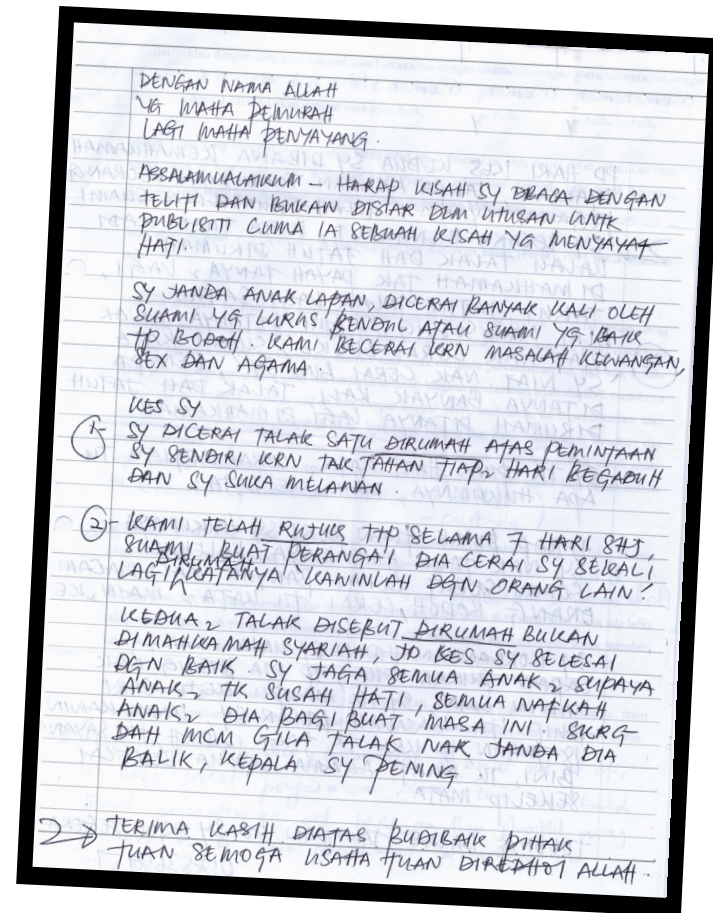 DENGAN NAMA ALLAH
YG MAHA PEMURAH
LAGI MAHA PENYAYANG.
ASSALAMUALAIKUM - HARAP KISAH SY DBACA DENGAN
TELITI DAN BUKAN DISIAR DLM UTUSAN UNTK
PUBLISITI CUMA IA SEBUAH KISAH YG MENYAYAT
HATI.
SY JANDA ANAK LAPAN, DICERAI BANYAK KALI OLEH
SUAMI YG LURUS BENDUL ATAU SUAMI YG BAIK
TP BODOH. KAMI BECERAI KRN MASALAH KEWANGAN,
SEX DAN AGAMA.
KES SY
1- SY DICERAI TALAK SATU DIRUMAH ATAS PEMINTAAN
SY SENDIRI KRN TAK TAHAN TIAP2 HARI BEGADUH
DAN SY SUKA MELAWAN.
2- KAMI TELAH RUJUK TTP SELAMA 7 HARI SHJ,
SUAMI BUAT PERANGAI DIA CERAI SY SEKALI
LAGI DIRUMAH KATANYA KAWINLAH DGN ORANG LAIN!
KEDUA2 TALAK DISEBUT DIRUMAH BUKAN
DIMAHKAMAH SYARIAH, JD KES SY SELESAI
DGN BAIK. SY JAGA SEMUA ANAK2 SUPAYA
ANAK2 TK SUSAH HATI, SEMUA NAFKAH
ANAK2 DIA BAGI BUAT MASA INI. SKRG
DAH MCM GILA TALAK NAK JANDA DIA
BALIK, KEPALA SY PENING.
TERIMA KASIH DIATAS BUDIBAIK PIHAK
TUAN SEMOGA USAHA TUAN DIREDHOI ALLAH.